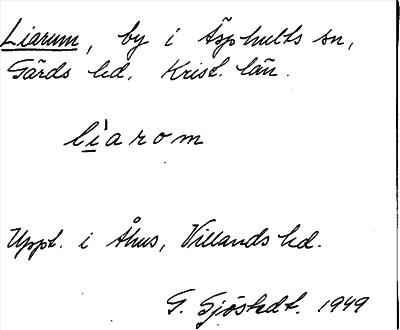 Liarum, by i Äsphults sn,
Gärds hd, Krist. län.
lìarom
Uppt. i Åhus, Villands hd.
G. Sjöstedt. 1949